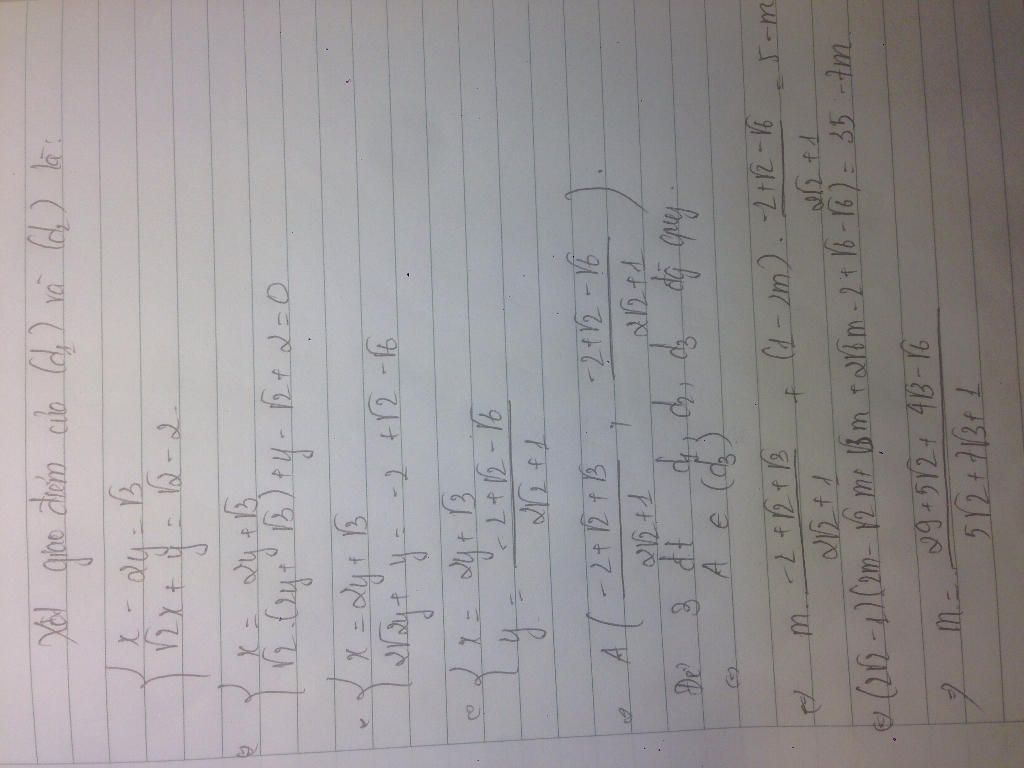 Xét giao điểm của (d₁) và (d₂) là:
{ x - 2y = √3
√2x + y = √2 - 2
⇔ { x = 2y + √3
√2 (2y + √3) + y - √2 + 2 = 0
⇔ { x = 2y + √3
2√2y + y = -2 + √2 - √6
⇔ { x = 2y + √3
y = (-2 + √2 - √6) / (2√2 + 1)
⇔ A ( (-2 + √2 + √3) / (2√2 + 1) , (-2 + √2 - √6) / (2√2 + 1) ).
Để 3 đt d₁, d₂, d₃ đg quy.
⇔ A ∈ (d₃)
⇔ m · (-2 + √2 + √3) / (2√2 + 1) + (1 - 2m) · (-2 + √2 - √6) / (2√2 + 1) = 5 - m
⇔ (2√2 - 1)(2m - √2m + √3m + 2√6m - 2 + √6 - √6) = 35 - 7m
⇒ m = (29 + 5√2 + 4√3 - √6) / (5√2 + 7√3 + 1)